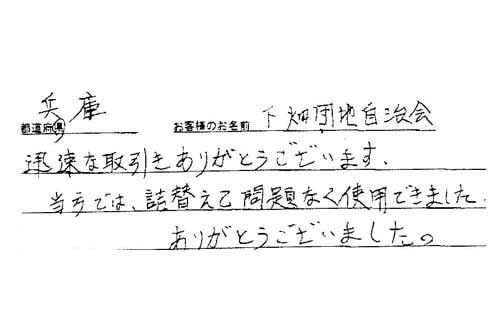 兵庫
都道府県 お客様のお名前 下畑団地自治会
迅速な取引きありがとうございます、
当方では、詰替えて問題なく使用できました.
ありがとうございました。